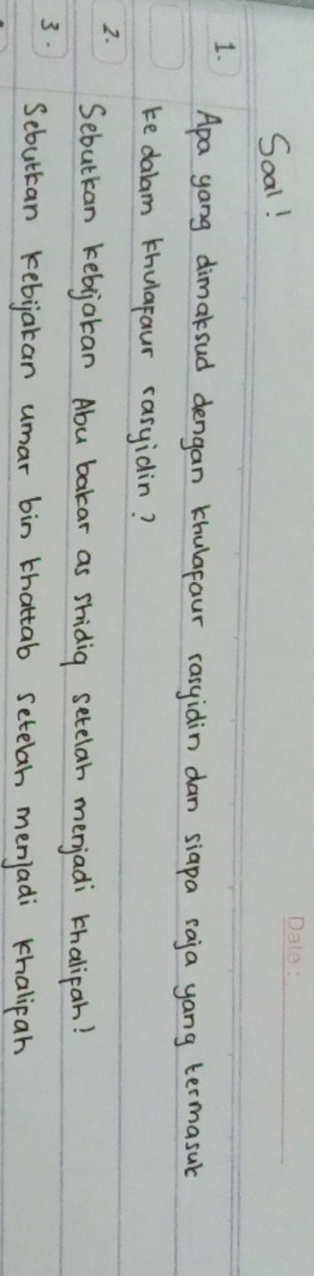 Date:
Soal!
1. Apa yang dimaksud dengan khulafaur rasyidin dan siapa saja yang termasuk
ke dalam khulafaur rasyidin?
2. Sebutkan kebijakan Abu bakar as shidiq setelah menjadi khalifah!
3. Sebutkan kebijakan umar bin khattab setelah menjadi khalifah